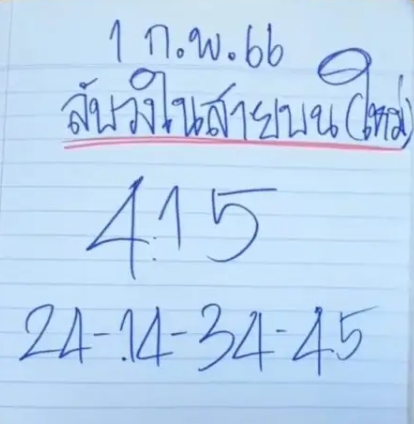 1 ก.พ.66
ลับวงในสายบน(ใหม่)
4.15
24-14-34-45